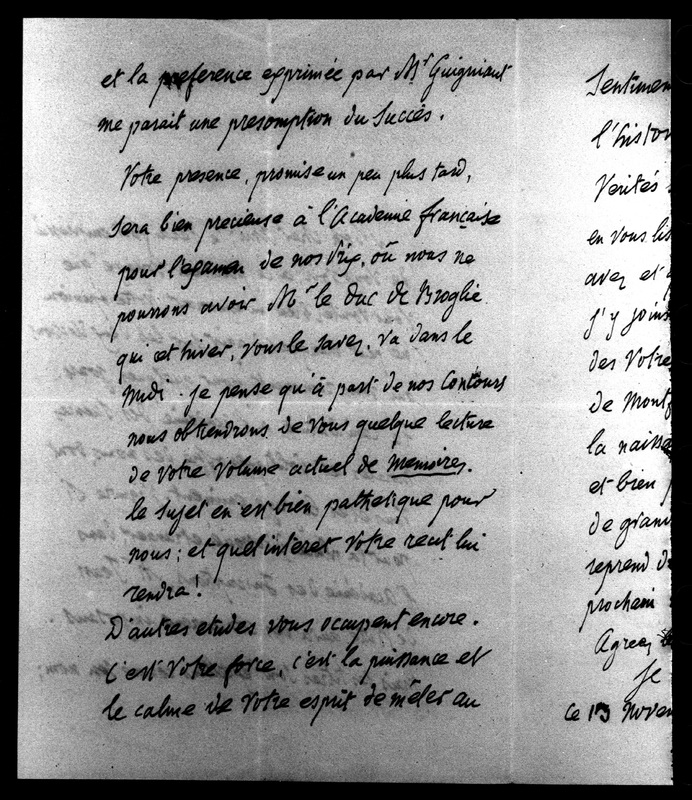 et la preference exprimée par Mr Guigniaut
me parait une presomption du succès.
Votre presence, promise un peu plus tard,
sera bien precieuse à l'Academie française
pour l'examen de nos Prix, où nous ne
pourrons avoir Mr le duc de Broglie
qui cet hiver, vous le savez, va dans le
midi. je pense qu'à part de nos Concours
nous obtiendrons de vous quelque lecture
de votre volume actuel de memoires.
le sujet en est bien pathetique pour
nous; et quel interet votre recit lui
rendra!
D'autres etudes vous occupent encore.
c'est votre force, c'est la puissance et
le calme de votre esprit de mêler au
Sentimen
l'histor
Verités
en vous lis
avez et
j'y joins
des Votre
de Mont
la naissa
et bien
de grand
reprend d
prochain
Agreez
Je
Ce 13 Novem